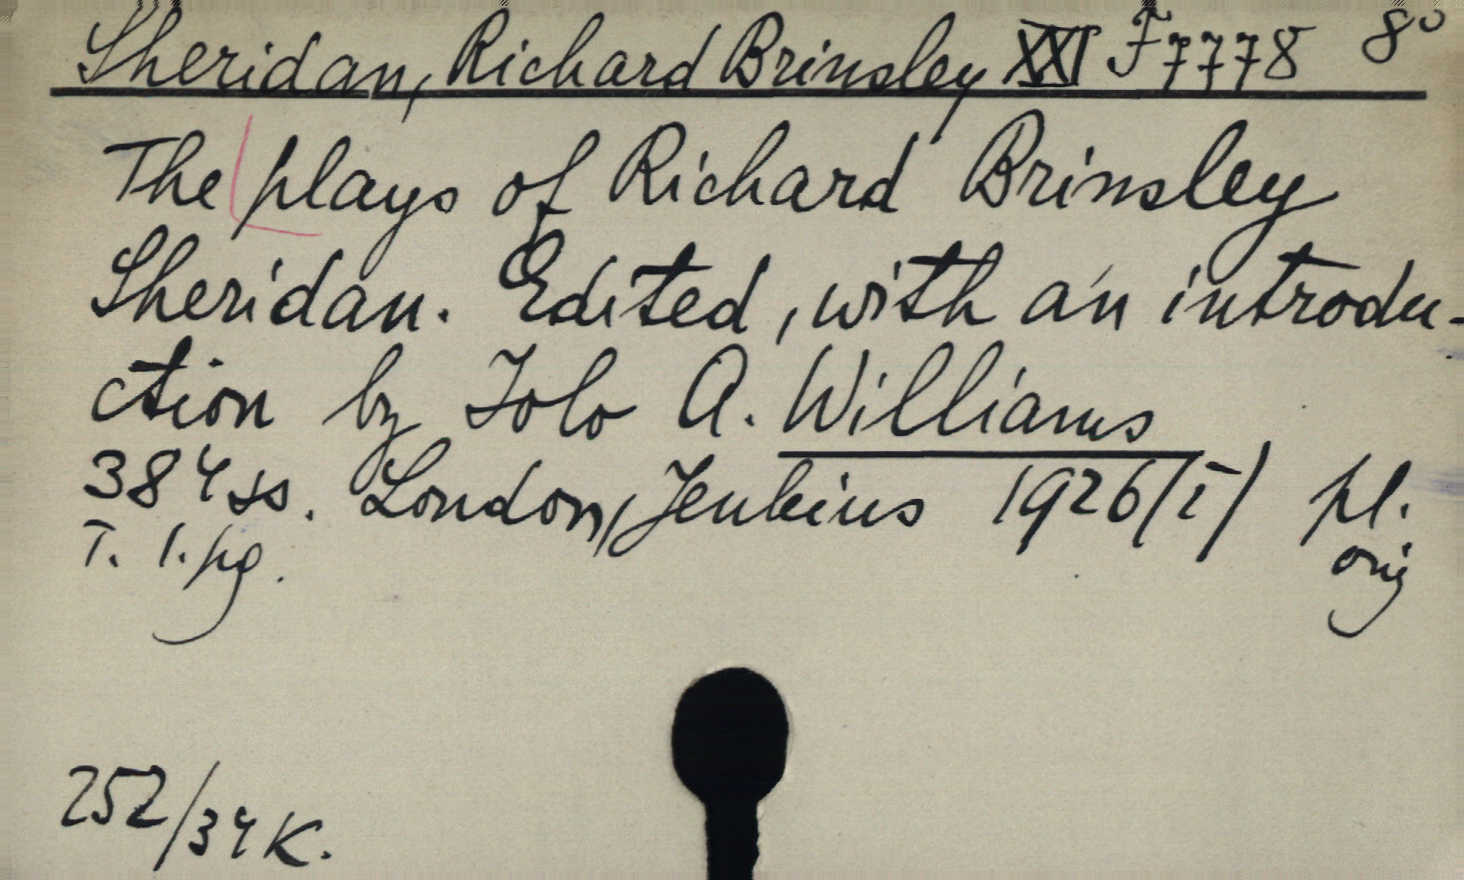 Sheridan, Richard Brinsley XXI F7778 8°
The plays of Richard Brinsley
Sheridan. Edited, with an introdu-
ction by Iolo A. Williams
384 ss. London, Jenkins 1926/I/ pl.
T. 1. pg. orig
252/34 K.